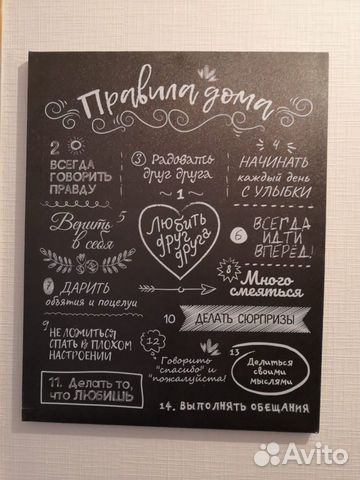 Правила дома
2
ВСЕГДА
ГОВОРИТЬ
ПРАВДУ
3 Радовать
друг друга
4
НАЧИНАТЬ
каждый день
С УЛЫБКИ
1
Любить
друг
друга
Верить 5
в себя
6 ВСЕГДА
ИДТИ
ВПЕРЁД!
7 ДАРИТЬ
объятия и поцелуи
8
Много
смеяться
9 НЕ ЛОЖИТЬСЯ
СПАТЬ В ПЛОХОМ
НАСТРОЕНИИ
10 ДЕЛАТЬ СЮРПРИЗЫ
11. Делать то,
что ЛЮБИШЬ
12
Говорить
"спасибо" и
"пожалуйста!"
13
Делиться
своими
мыслями
14. ВЫПОЛНЯТЬ ОБЕЩАНИЯ
Avito